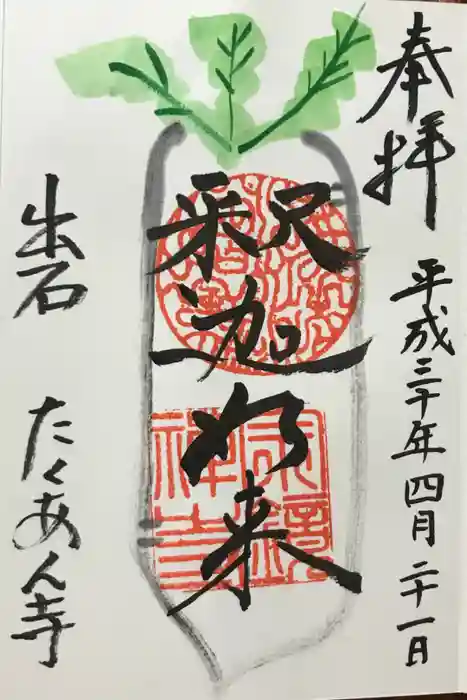 奉拝 平成三十年四月二十一日
釈迦如来
宗鏡
禅寺
出石 たくあん寺